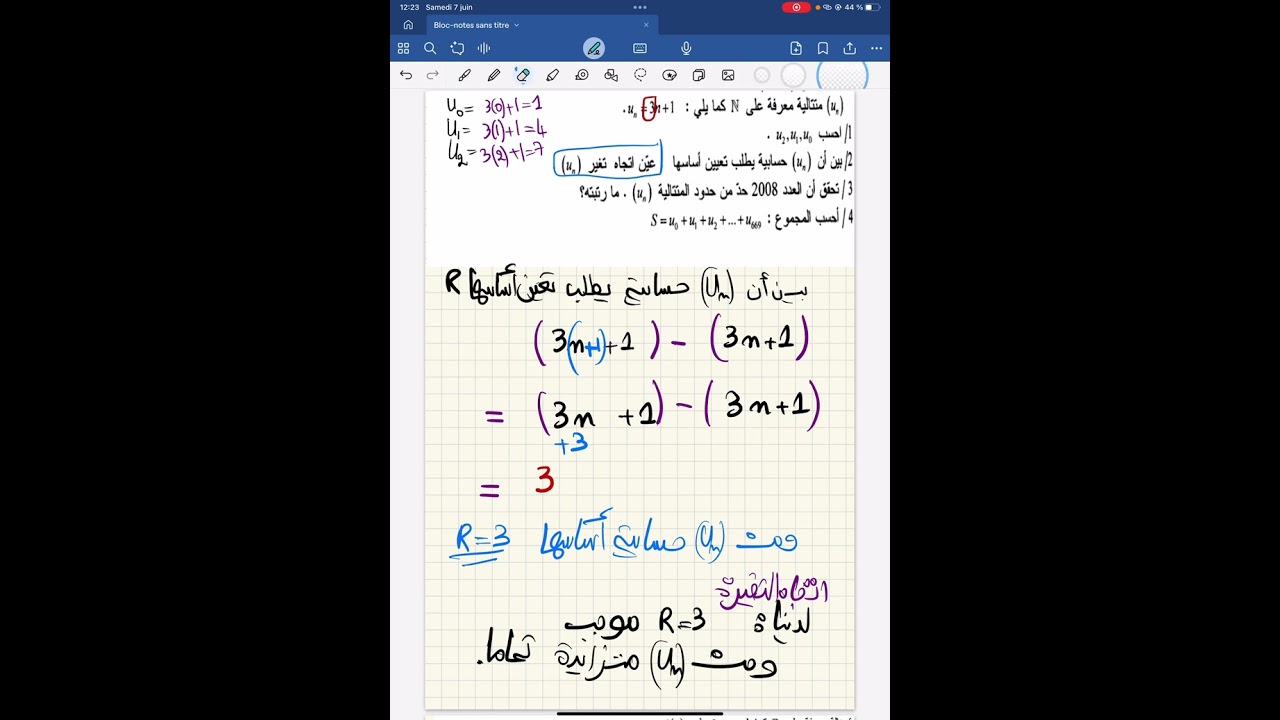 12:23 Samedi 7 juin
44 %
Bloc-notes sans titre
(uₙ) متتالية معرفة على ℕ كما يلي : uₙ = 3n+1 .
1/ احسب u₂,u₁,u₀ .
2/ بين أن (uₙ) حسابية يطلب تعيين أساسها عيّن اتجاه تغير (uₙ)
3/ تحقق أن العدد 2008 حدّ من حدود المتتالية (uₙ) . ما رتبته؟
4/ أحسب المجموع : S = u₀ + u₁ + u₂ + ... + u₆₆₉
U₀= 3(0)+1=1
U₁= 3(1)+1=4
U₂= 3(2)+1=7
بين أن (Uₙ) حسابية يطلب تعين أساسها R
(3(n+1)+1) - (3n+1)
= (3n +1) - (3n+1)
+3
= 3
ومنه (Uₙ) حسابية أساسها R=3
اتجاه التغير
لدينا R=3 موجب
ومنه (Uₙ) متزايدة تماما.